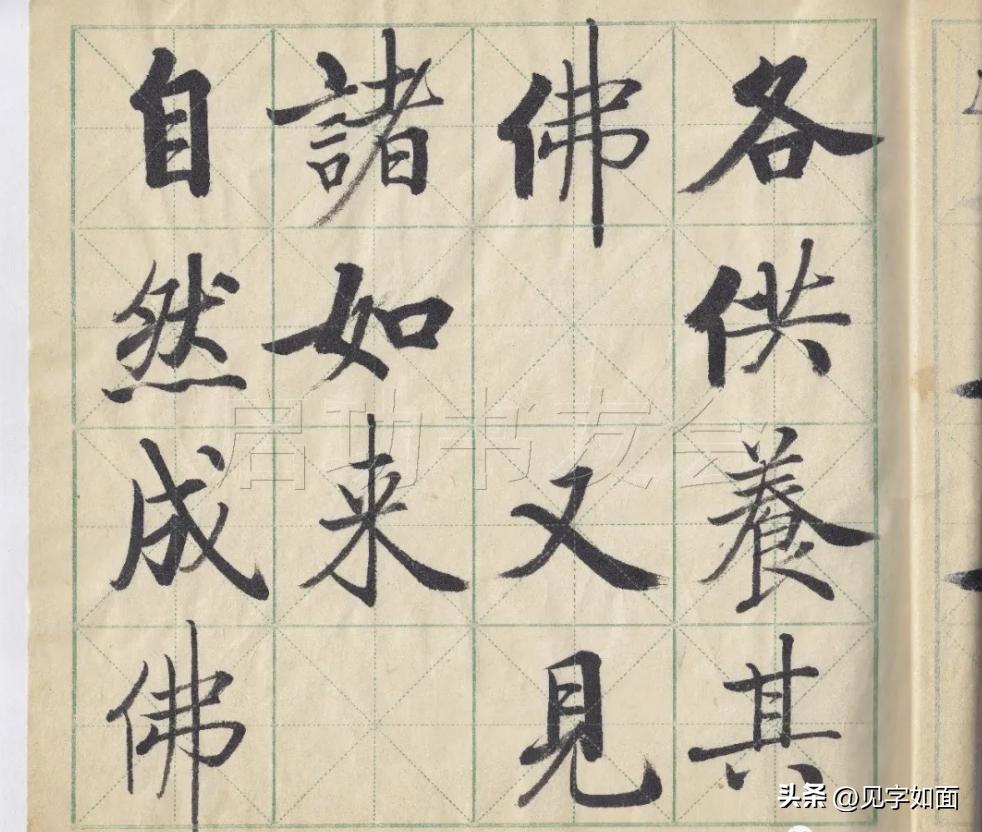 各供養其
佛 又見
諸如来
自然成佛
启功书友会
头条 @见字如面